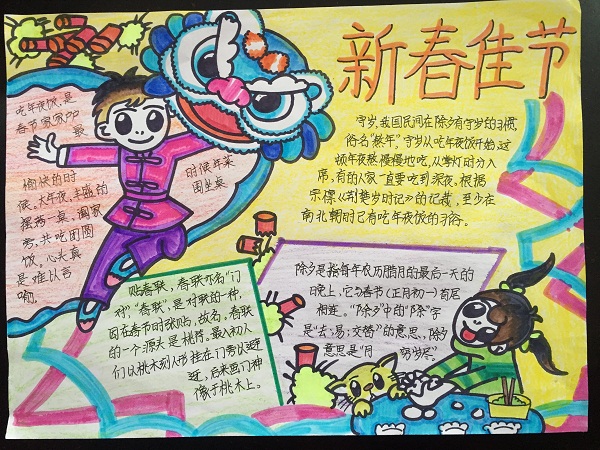 新春佳节
吃年夜饭,是
春节家家户户
愉快的时
候。大年夜,丰盛的
摆满一桌,阖家
旁,共吃团圆
饭,心头真
是难以言
喻。
时候年菜
围坐桌
守岁,我国民间在除夕有守岁的习惯,
俗名“熬年”。守岁从吃年夜饭开始,这
顿年夜熬慢慢地吃,从掌灯时分入
席,有的人家一直要吃到深夜。根据
宗懔《荆楚岁时记》的记载,至少在
南北朝时已有吃年夜饭的习俗。
贴春联,春联亦名“门
对”“春联”,是对联的一种,
因在春节时张贴,故名。春联
的一个源头是桃符。最初人
们以桃木刻人形挂在门旁以避
近,后来画门神
像于桃木上。
除夕是指每年农历腊月的最后一天的
晚上,它与春节(正月初一)首尾
相连。“除夕”中的“除”字
是“去;易;交替”的意思,除夕
意思是“月穷岁尽”。